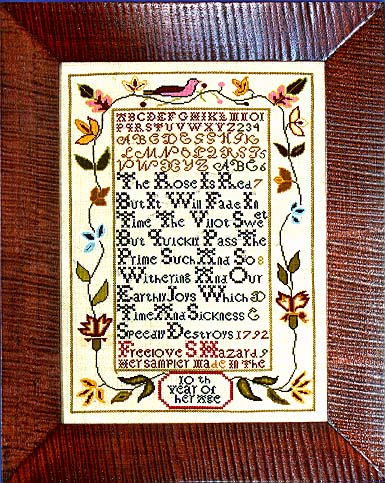 ABCDEFGHIKLMNOI
PYRSTUVWXYZ234
ABCDEFGHIK
LMNOPQRST5
VWXYZ ABC6
The Rose Is Red7
But It Will Fade In
Time The Vilot Sweet
But Quickly Pass The
Prime Such And So8
Withering And Our
Earthly Joys Which
Time And Sickness &
Speedly Destroys 1792
Freelove S Hazard 9
Her sampler made in the
10th
year of
her age